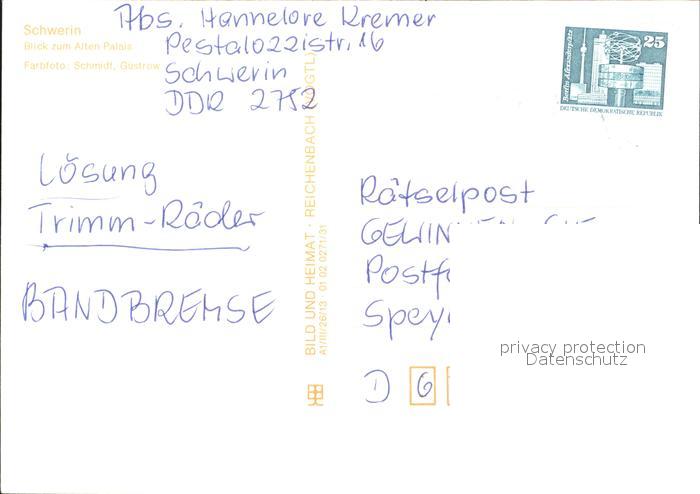 Schwerin
Blick zum Alten Palais
Farbfoto: Schmidt, Güstrow
Abs. Hannelore Kremer
Pestalozzistr. 16
Schwerin
DDR 2752
Lösung
Trimm-Räder
BANDBREMSE
BILD UND HEIMAT · REICHENBACH
A1/III/26/13 01 02 0271/31
Berlin, Alexanderplatz
25
DEUTSCHE DEMOKRATISCHE REPUBLIK
Rätselpost
Postf
Spey
D 6
privacy protection
Datenschutz